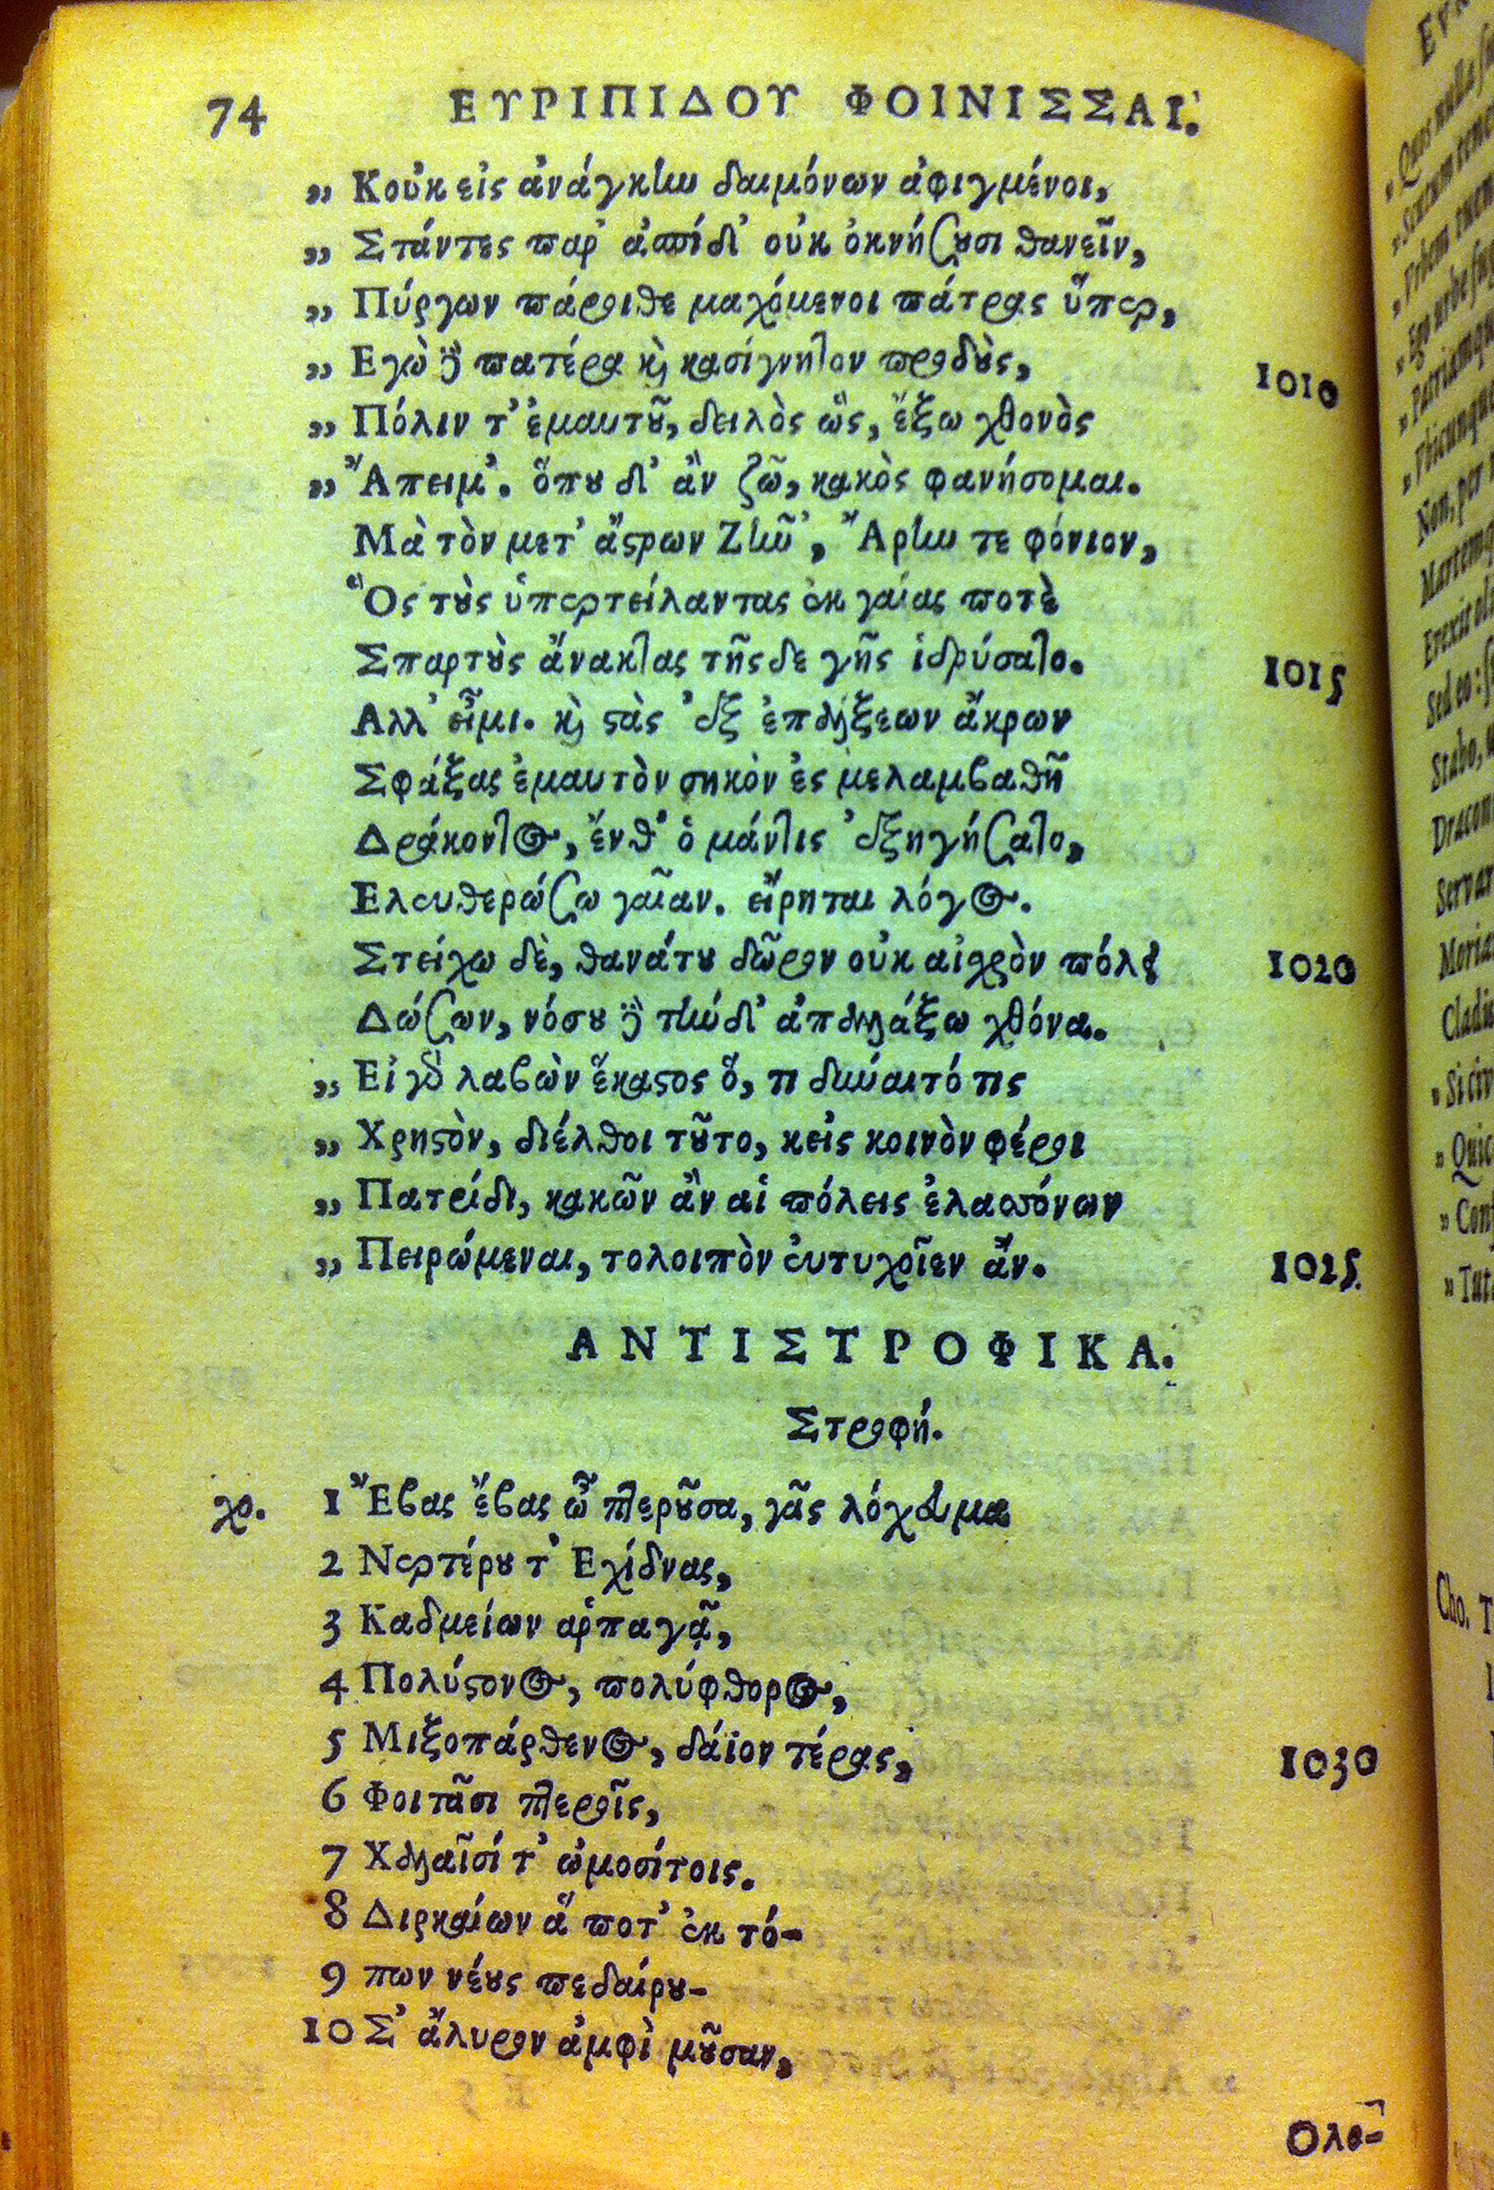 74 ΕΥΡΙΠΙΔΟΥ ΦΟΙΝΙΣΣΑΙ.
„ Κοὐκ εἰς ἀνάγκην δαιμόνων ἀφιγμένοι,
„ Στάντες παρ' ἀσπίδ' οὐκ ὀκνήσουσι θανεῖν,
„ Πύργων πάροιθε μαχόμενοι πάτρας ὕπερ,
„ Εγὼ δὲ πατέρα καὶ κασίγνητον προδοὺς, 1010
„ Πόλιν τ' ἐμαυτοῦ, δειλὸς ὣς, ἔξω χθονὸς
„ Ἄπειμ'. ὅπου δ' ἂν ζῶ, κακὸς φανήσομαι.
Μὰ τὸν μετ' ἄστρων Ζῆν', Ἄρην τε φόνιον,
Ὃς τοὺς ὑπερτείλαντας ἐκ γαίας ποτὲ
Σπαρτοὺς ἄνακτας τῆς δε γῆς ἱδρύσατο. 1015
Αλλ' εἶμι. καὶ στὰς ἐξ ἐπάλξεων ἄκρων
Σφάξας ἐμαυτὸν σηκὸν ἐς μελαμβαθῆ
Δράκοντος, ἔνθ' ὁ μάντις ἐξηγήσατο,
Ελευθερώσω γαῖαν. εἴρηται λόγος.
Στείχω δὲ, θανάτου δῶρον οὐκ αἰχρὸν πόλει 1020
Δώσων, νόσου δὲ τήνδ' ἀπαλλάξω χθόνα.
„ Εἰ γὸ λαβὼν ἕκαστος ὅ, τι δύναιτό τις
„ Χρηστὸν, διέλθοι τοῦτο, κεἰς κοινὸν φέροι
„ Πατρίδι, κακῶν ἂν αἱ πόλεις ἐλασσόνων
„ Πειρώμεναι, τολοιπὸν εὐτυχοῖεν ἄν. 1025
ΑΝΤΙΣΤΡΟΦΙΚΑ.
Στροφή.
χο. 1 Ἔβας ἔβας ὦ πτεροῦσα, γᾶς λόχευμα
2 Νερτέρου τ' Εχίδνας,
3 Καδμείων ἁρπαγᾷ,
4 Πολύστονος, πολύφθορος,
5 Μιξοπάρθενος, δάϊον τέρας, 1030
6 Φοιτᾶσι πτεροῖς,
7 Χαλαῖσί τ' ὠμοσίτοις.
8 Διρκαίων ἅ ποτ' ἐκ τό-
9 πων νέους πεδαίρου-
10 Σ' ἄλυρον ἀμφὶ μοῦσαν,
Ολο-